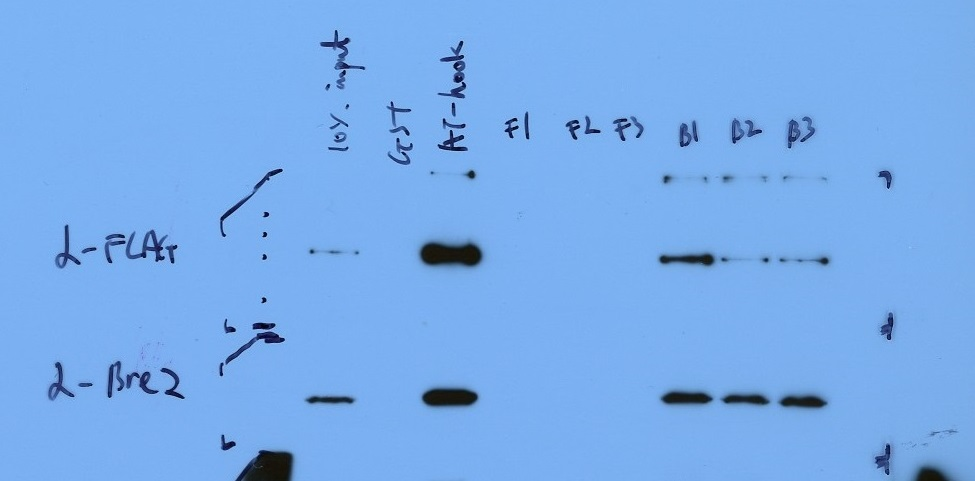 10%. input GST AT-hook F1 F2 F3 B1 B2 B3
α-FLAG
α-Bre2